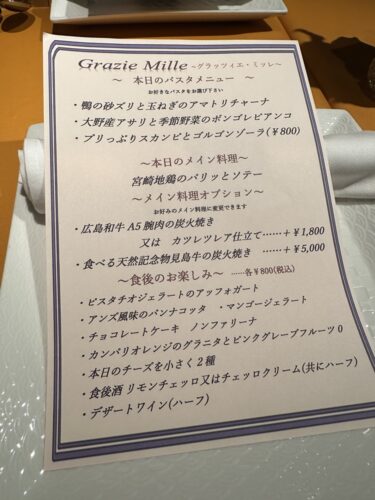 Grazie Mille ~グラッツィエ・ミッレ~
~ 本日のパスタメニュー ~
お好きなパスタをお選び下さい
・鴨の砂ズリと玉ねぎのアマトリチャーナ
・大野産アサリと季節野菜のボンゴレビアンコ
・プリっぷりスカンピとゴルゴンゾーラ(¥800)
~本日のメイン料理~
宮崎地鶏のパリッとソテー
~メイン料理オプション~
お好みのメイン料理に変更できます
・広島和牛 A5 腕肉の炭火焼き
又は カツレツレア仕立て……+¥1,800
・食べる天然記念物見島牛の炭火焼き ……+¥5,000
~食後のお楽しみ~ ……各¥800(税込)
・ピスタチオジェラートのアッフォガート
・アンズ風味のパンナコッタ ・マンゴージェラート
・チョコレートケーキ ノンファリーナ
・カンパリオレンジのグラニタとピンクグレープフルーツ 0
・本日のチーズを小さく2種
・食後酒 リモンチェッロ又はチェッロクリーム(共にハーフ)
・デザートワイン(ハーフ)